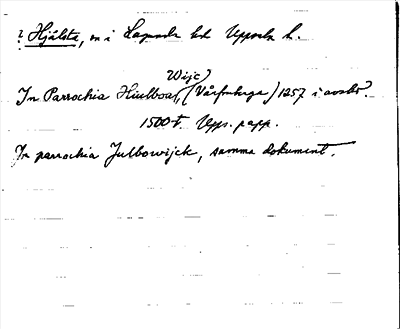 ? Hjälsta, sn i Lagunda hd Uppsala l.
Wijc)
In Parrochia Hiulboa, (Vårfruberga) 1257 i avskr.
1500-t. Upps. papp.
In parrochia Julbowijck, samma dokument.